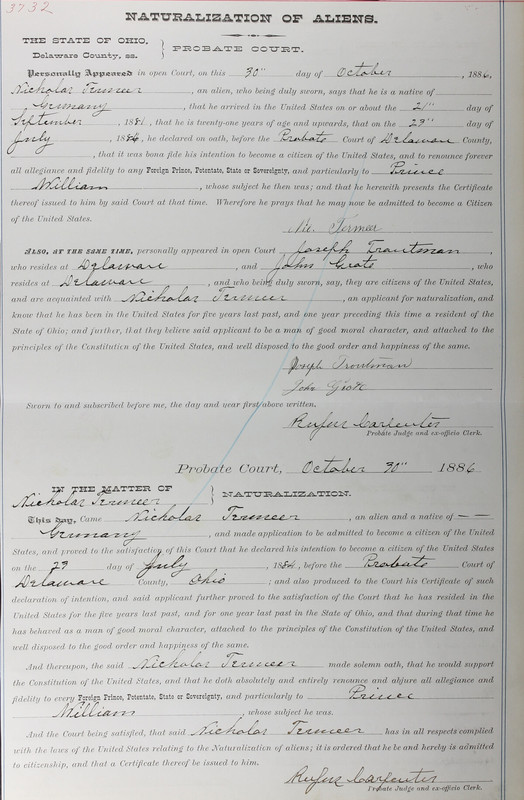 3732
NATURALIZATION OF ALIENS.
THE STATE OF OHIO,
Delaware County, ss.
PROBATE COURT.
Personally Appeared in open Court, on this 30" day of October, 1886,
Nicholas Termeer, an alien, who being duly sworn, says that he is a native of
Germany, that he arrived in the United States on or about the 21" day of
September, 1881, that he is twenty-one years of age and upwards, that on the 29" day of
July, 1884, he declared on oath, before the Probate Court of Delaware County,
, that it was bona fide his intention to become a citizen of the United States, and to renounce forever
all allegiance and fidelity to any Foreign Prince, Potentate, State or Sovereignty, and particularly to Prince
William, whose subject he then was; and that he herewith presents the Certificate
thereof issued to him by said Court at that time. Wherefore he prays that he may now be admitted to become a Citizen
of the United States.
Nic. Termeer
ALSO, AT THE SAME TIME, personally appeared in open Court Joseph Troutman,
who resides at Delaware, and John Grote, who
resides at Delaware, and who being duly sworn, say, they are citizens of the United States,
and are acquainted with Nicholas Termeer, an applicant for naturalization, and
know that he has been in the United States for five years last past, and one year preceding this time a resident of the
State of Ohio; and further, that they believe said applicant to be a man of good moral character, and attached to the
principles of the Constitution of the United States, and well disposed to the good order and happiness of the same.
Joseph Troutman
John Grote
Sworn to and subscribed before me, the day and year first above written.
Rufus Carpenter
Probate Judge and ex-officio Clerk.
Probate Court, October 30" 1886
IN THE MATTER OF
Nicholas Termeer
NATURALIZATION.
This day, Came Nicholas Termeer, an alien and a native of
Germany, and made application to be admitted to become a citizen of the United
States, and proved to the satisfaction of this Court that he declared his intention to become a citizen of the United States
on the 29 day of July, 1884, before the Probate Court of
Delaware County, Ohio; and also produced to this Court his Certificate of such
declaration of intention, and said applicant further proved to the satisfaction of the Court that he has resided in the
United States for the five years last past, and for one year last past in the State of Ohio, and that during that time he
has behaved as a man of good moral character, attached to the principles of the Constitution of the United States, and
well disposed to the good order and happiness of the same.
And thereupon, the said Nicholas Termeer made solemn oath, that he would support
the Constitution of the United States, and that he doth absolutely and entirely renounce and abjure all allegiance and
fidelity to every Foreign Prince, Potentate, State or Sovereignty, and particularly to Prince
William, whose subject he was.
And the Court being satisfied, that said Nicholas Termeer has in all respects complied
with the laws of the United States relating to the Naturalization of aliens; it is ordered that he be and hereby is admitted
to citizenship, and that a Certificate thereof be issued to him.
Rufus Carpenter
Probate Judge and ex-officio Clerk.